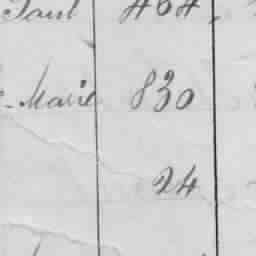 Paul 464
-Marie 830
24